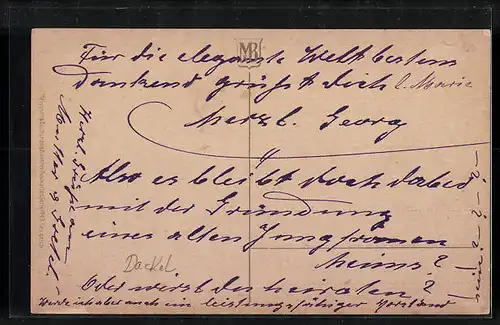 MB
Für die elegante Welt bestens
dankend grüßt dich l. Marie
herzl. Georg
Also es bleibt doch dabei
mit der Gründung
eines alten Jungfrauen
heims?
Oder wirst du heiraten?
Werde ich aber auch ein leistungsfähiger Vorstand
Dackel
Herzl. Grüße an
Mutter &